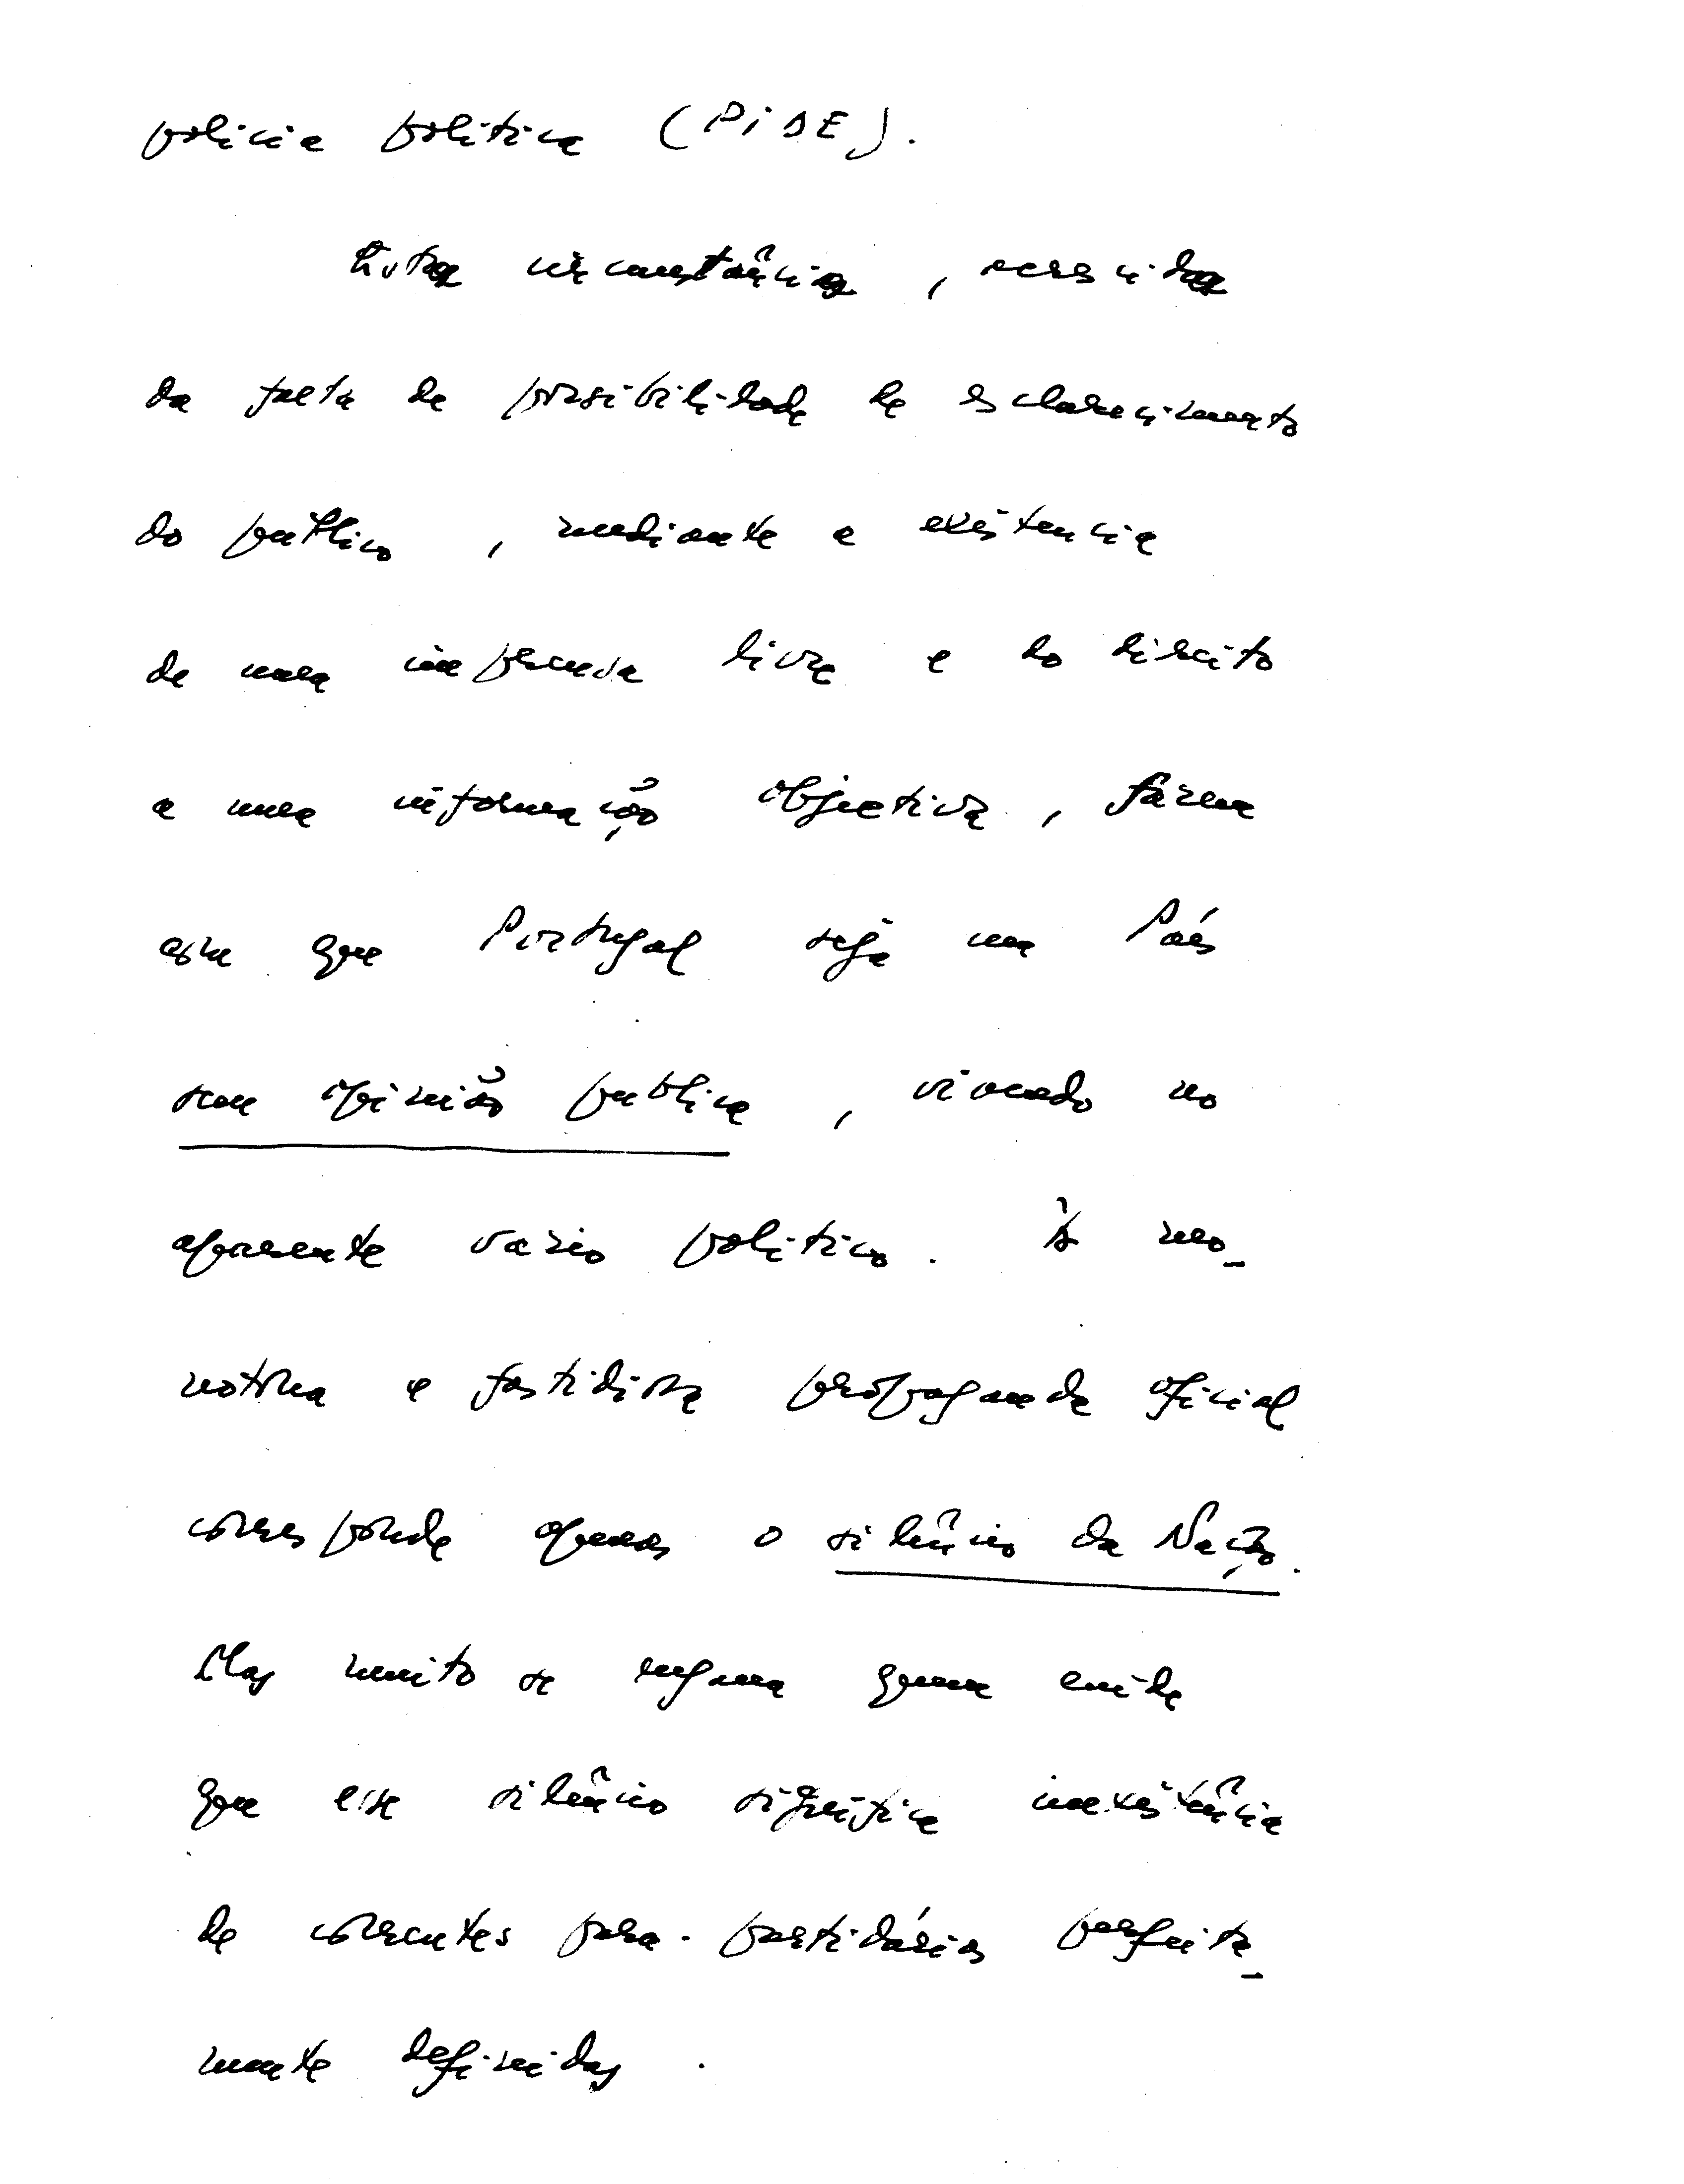 policia politica (PIDE).
Esta circunstância, acrescida
da falta de possibilidade de esclarecimento
do público, mediante a existencia
de uma imprensa livre e do direito
a uma informação objectiva, fazem
com que Portugal seja um País
sem opinião publica, vivendo no
aparente vazio politico. À mo-
notona e fastidiosa propaganda oficial
corresponde apenas o silêncio da Nação.
Mas muito se engana quem cuide
que esse silêncio significa inexistência
de correntes para-partidárias perfeita-
mente definidas.